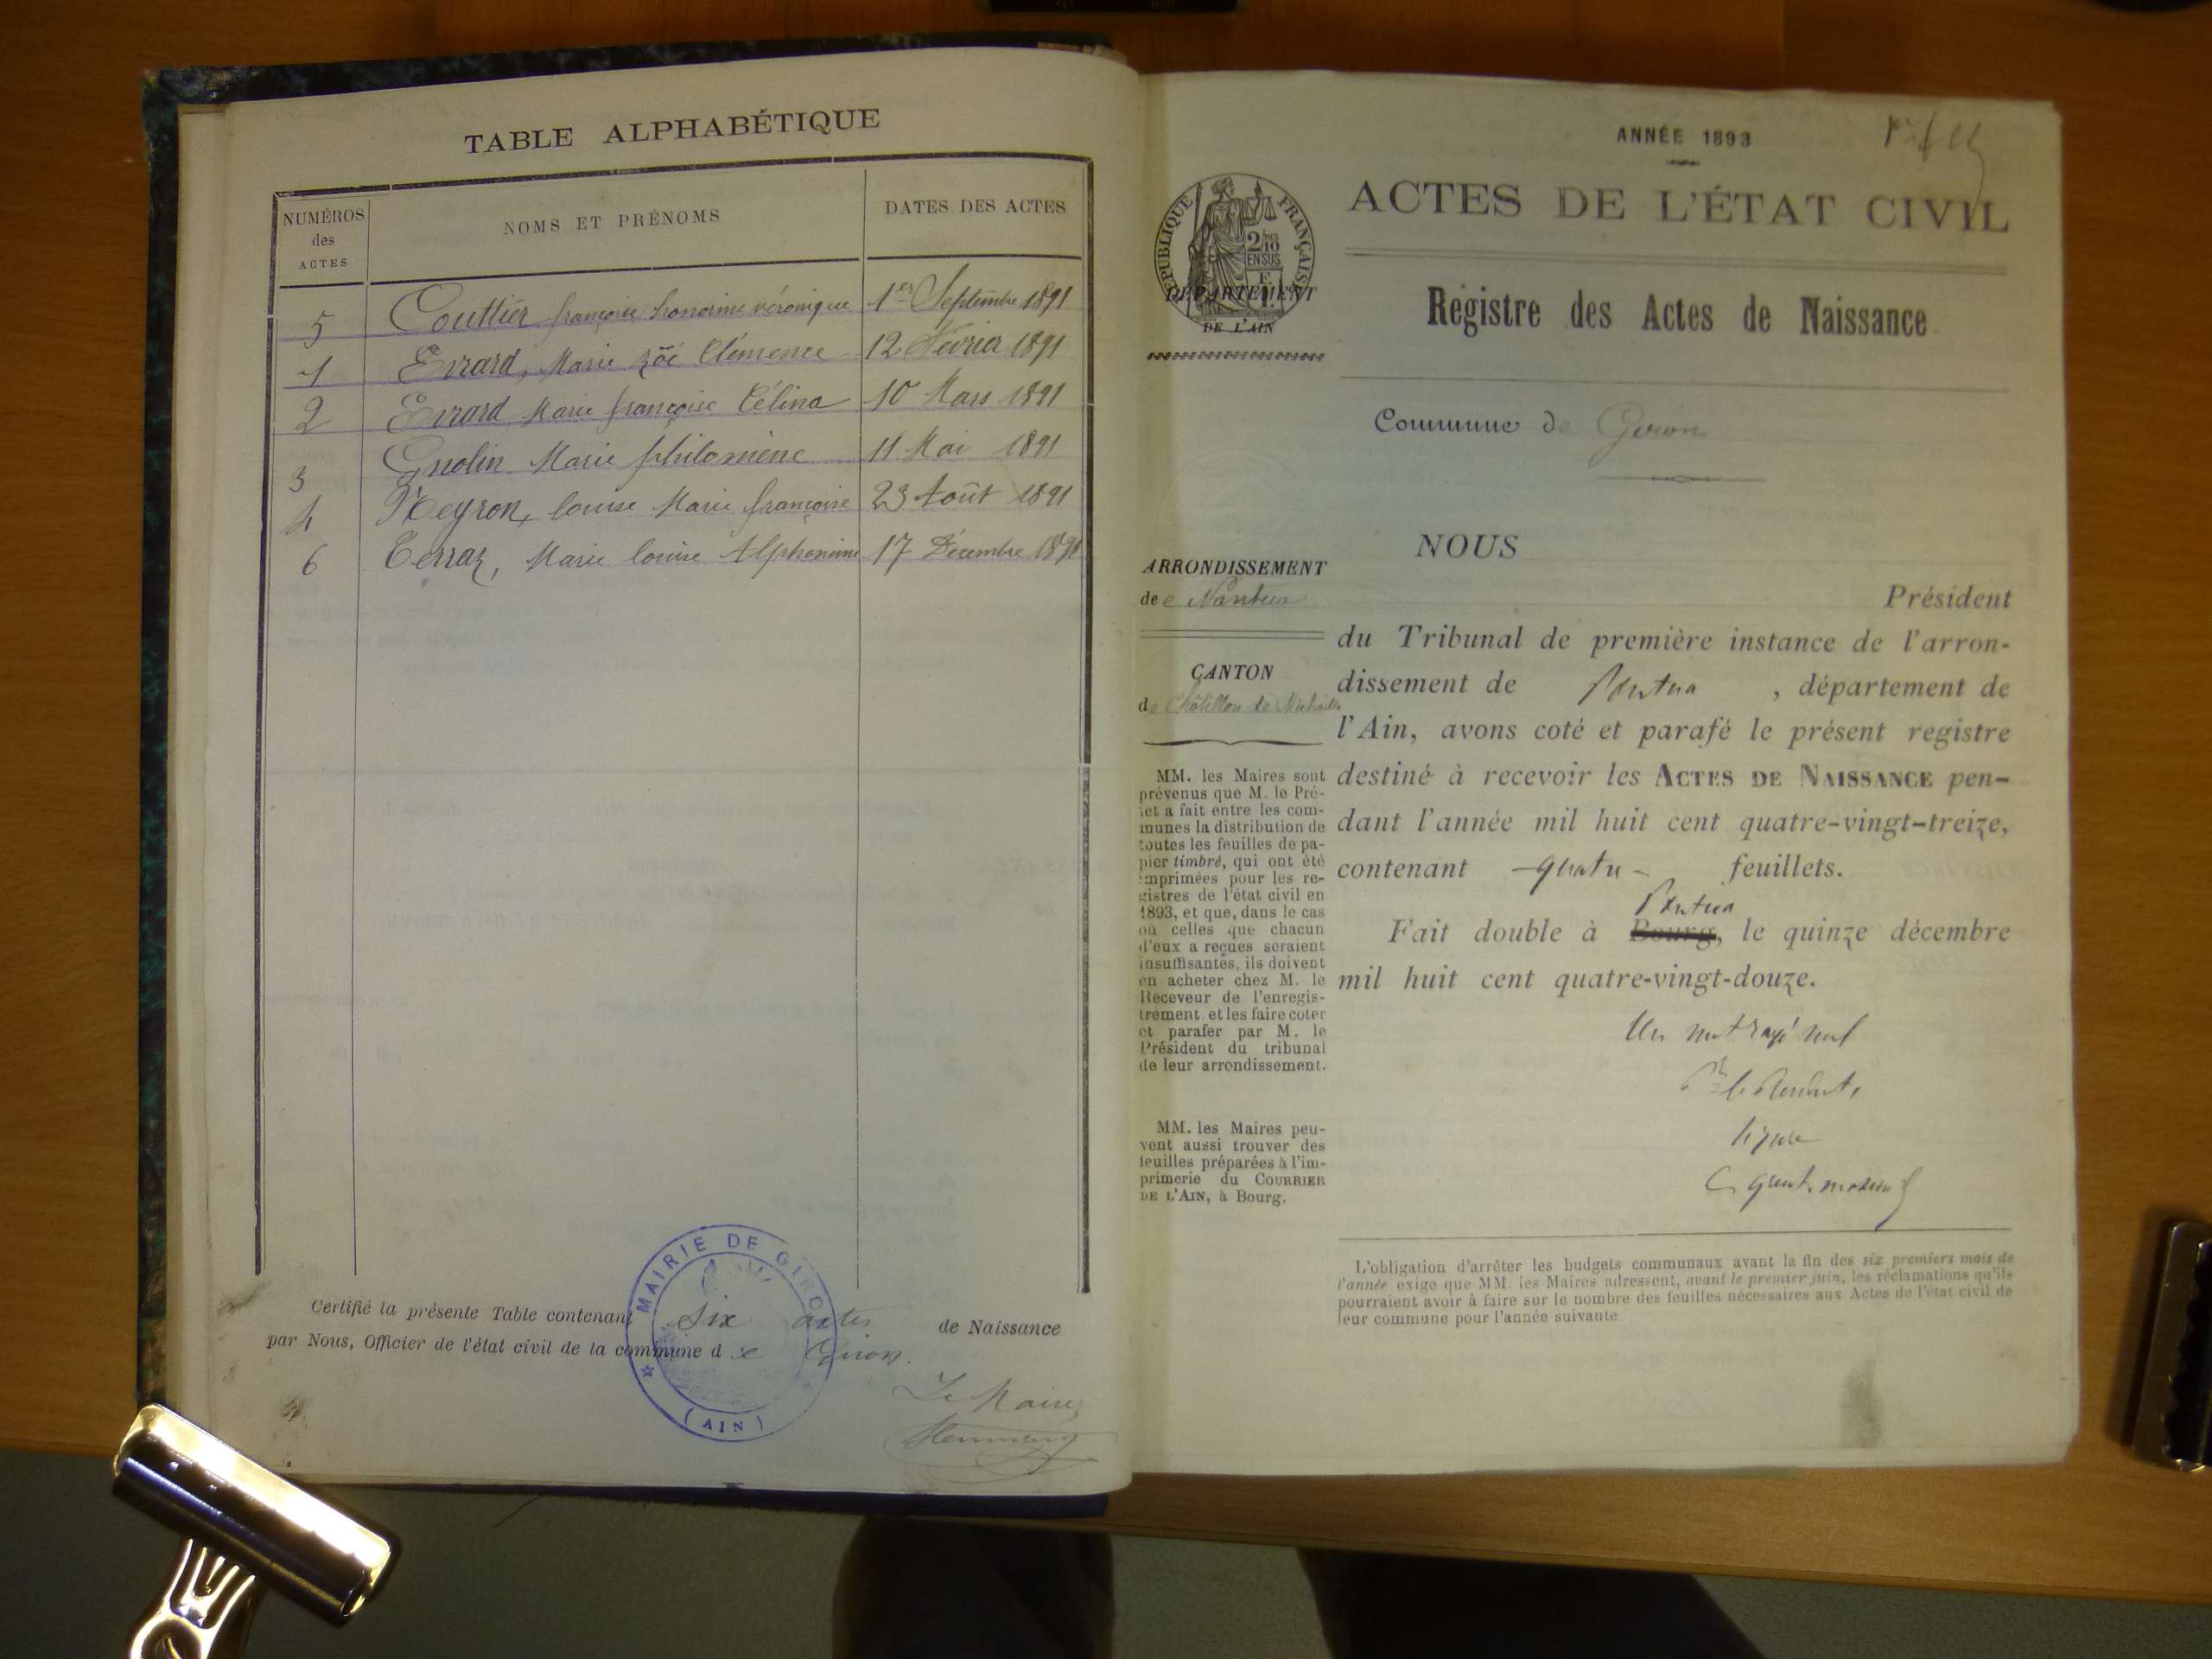 TABLE ALPHABÉTIQUE
NUMÉROS des ACTES
NOMS ET PRÉNOMS
DATES DES ACTES
5 Couttier françoise honorine véronique 1er Septembre 1891
1 Evrard, Marie zoé Clémence 12 Février 1891
2 Evrard Marie françoise Célina 10 Mars 1891
3 Marie philomène 11 Mai 1891
4 louise Marie françoise 23 Août 1891
6 Terraz, Marie louise Alphonsine 17 Décembre 1891
Certifié la présente Table contenant six actes de Naissance
par Nous, Officier de l'état civil de la commune de Giron.
MAIRIE DE GIRON
(AIN)
Le Maire,
ANNÉE 1893
RÉPUBLIQUE FRANÇAISE
2/10
EN SUS
DÉPARTEMENT
DE L'AIN
ACTES DE L'ÉTAT CIVIL
Régistre des Actes de Naissance
Commune de Giron
ARRONDISSEMENT
de Nantua
CANTON
de Châtillon de Michaille
MM. les Maires sont
prévenus que M. le Pré-
fet a fait entre les com-
munes la distribution de
toutes les feuilles de pa-
pier timbré, qui ont été
imprimées pour les re-
gistres de l'état civil en
1893, et que, dans le cas
où celles que chacun
d'eux a reçues seraient
insuffisantes, ils doivent
en acheter chez M. le
Receveur de l'enregis-
trement et les faire coter
et parafer par M. le
Président du tribunal
de leur arrondissement.
MM. les Maires peu-
vent aussi trouver des
feuilles préparées à l'im-
primerie du COURRIER
DE L'AIN, à Bourg.
NOUS
Président
du Tribunal de première instance de l'arron-
dissement de Nantua, département de
l'Ain, avons coté et parafé le présent registre
destiné à recevoir les ACTES DE NAISSANCE pen-
dant l'année mil huit cent quatre-vingt-treize,
contenant quatre feuillets.
Nantua
Fait double à Bourg, le quinze décembre
mil huit cent quatre-vingt-douze.
Un mot rayé nul
le Président,
L'obligation d'arrêter les budgets communaux avant la fin des six premiers mois de
l'année exige que MM. les Maires adressent, avant le premier juin, les réclamations qu'ils
pourraient avoir à faire sur le nombre des feuilles nécessaires aux Actes de l'état civil de
leur commune pour l'année suivante.